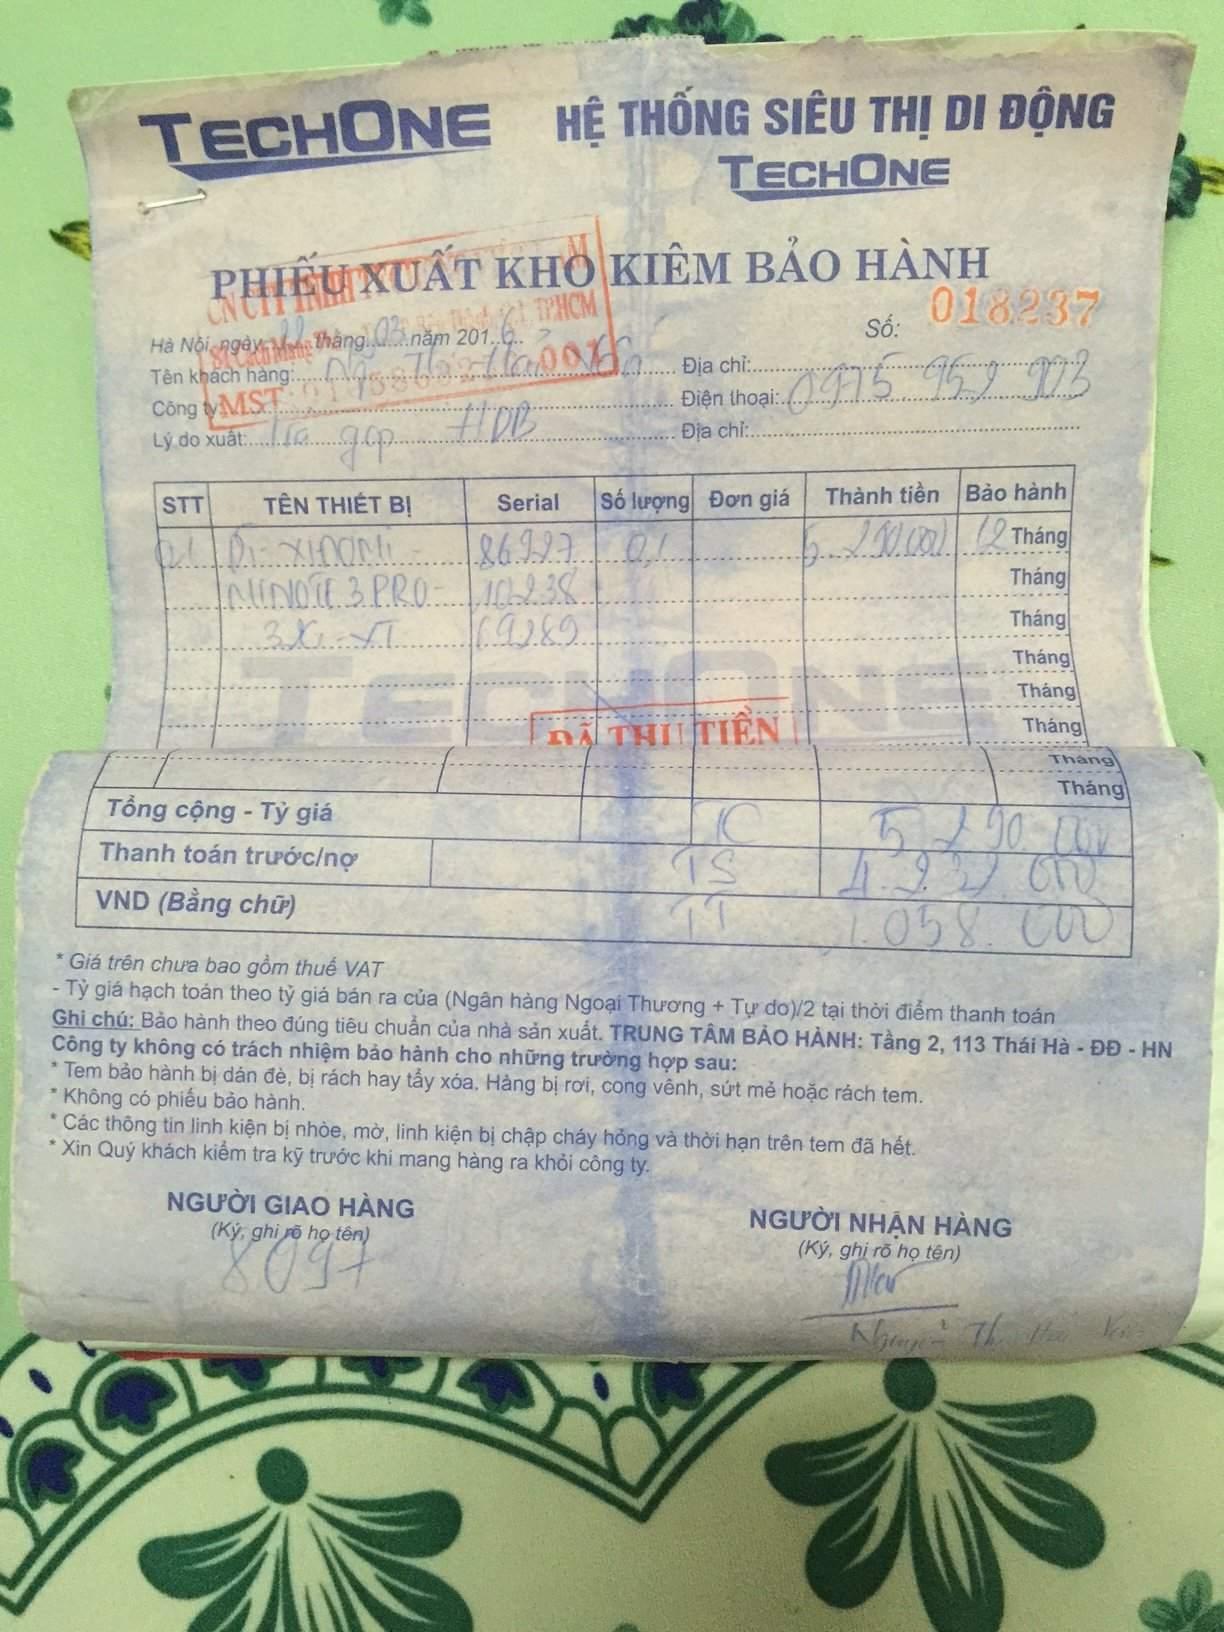 TECHONE HỆ THỐNG SIÊU THỊ DI ĐỘNG
TECHONE
PHIẾU XUẤT KHO KIÊM BẢO HÀNH
CN CTY TNHH
TP.HCM
Số: 018237
Hà Nội, ngày 22 tháng 03 năm 2016
Tên khách hàng: Địa chỉ:
MST 001
Công ty: Điện thoại: 0975.952 903
Lý do xuất: Trả góp HDB Địa chỉ:
STT TÊN THIẾT BỊ Serial Số lượng Đơn giá Thành tiền Bảo hành
01 Đt - XIAOMI - 86927 01 5.290.000 12 Tháng
MINOTE 3 PRO - 10238 Tháng
69289 Tháng
Tháng
TECHONE
Tháng
ĐÃ THU TIỀN
Tháng
Tháng
Tháng
Tổng cộng - Tỷ giá TC 5.290.000
Thanh toán trước/nợ TS 4.232.000
VND (Bằng chữ) TT 1.058.000
* Giá trên chưa bao gồm thuế VAT
- Tỷ giá hạch toán theo tỷ giá bán ra của (Ngân hàng Ngoại Thương + Tự do)/2 tại thời điểm thanh toán
Ghi chú: Bảo hành theo đúng tiêu chuẩn của nhà sản xuất. TRUNG TÂM BẢO HÀNH: Tầng 2, 113 Thái Hà - ĐĐ - HN
Công ty không có trách nhiệm bảo hành cho những trường hợp sau:
* Tem bảo hành bị dán đè, bị rách hay tẩy xóa. Hàng bị rơi, cong vênh, sứt mẻ hoặc rách tem.
* Không có phiếu bảo hành.
* Các thông tin linh kiện bị nhòe, mờ, linh kiện bị chập cháy hỏng và thời hạn trên tem đã hết.
* Xin Quý khách kiểm tra kỹ trước khi mang hàng ra khỏi công ty.
NGƯỜI GIAO HÀNG NGƯỜI NHẬN HÀNG
(Ký, ghi rõ họ tên) (Ký, ghi rõ họ tên)
8097